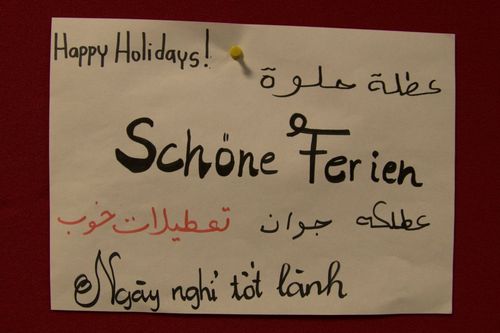 Happy Holidays!
عطلة حلوة
Schöne Ferien
عطلكه جوان تعطیلات خوب
Ngày nghỉ tốt lành